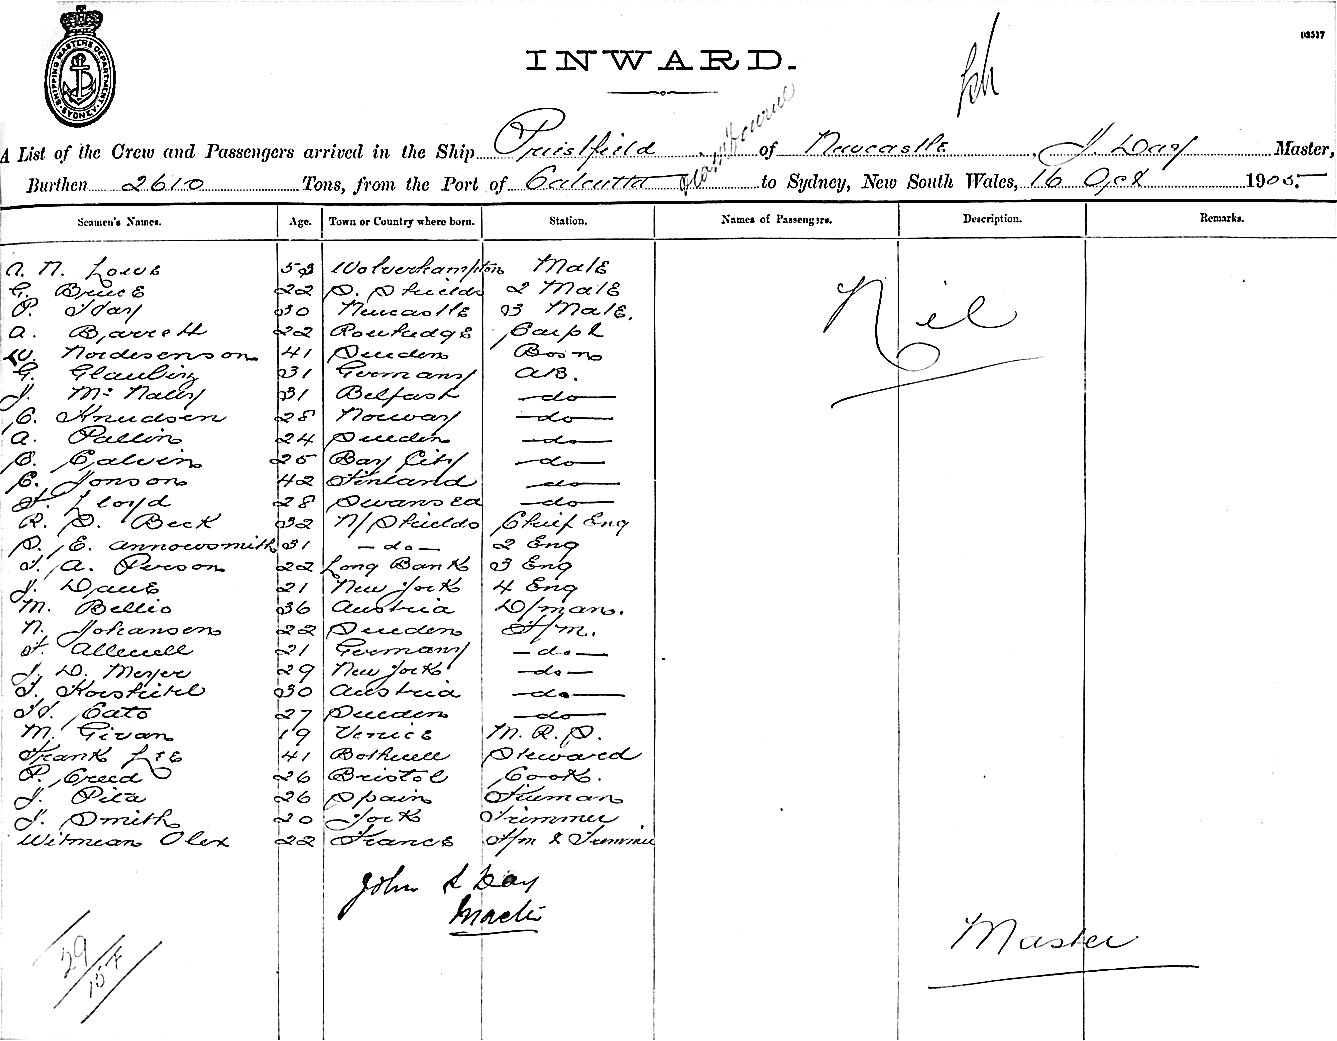 SHIPPING MASTERS DEPARTMENT SYDNEY
03517
INWARD.
A List of the Crew and Passengers arrived in the Ship Priestfield of Newcastle, J. Day Master,
Burthen 2610 Tons, from the Port of Calcutta via Melbourne to Sydney, New South Wales, 16 Oct 1905.
Seamen's Names. Age. Town or Country where born. Station. Names of Passengers. Description. Remarks.
A. N. Lowe 53 Wolverhampton Mate
G. Bruce 22 S. Shields 2 Mate
P. Hay 30 Newcastle 3 Mate.
A. Barrett 22 Rowhedge Carpt
W. Nordesenson 41 Sweden Bosn
G. Glaubitz 31 Germany AB.
J. McNally 31 Belfast do
C. Knudsen 28 Norway do
A. Pallin 24 Sweden do
C. Calvin 25 Bay City do
C. Jonson 42 Finland do
F. Lloyd 28 Swansea do
R. S. Beck 32 N/Shields Chief Eng
S. E. Annowsmith 31 do 2 Eng
T. A. Person 22 Long Bank 3 Eng
J. Daus 21 New York 4 Eng
M. Bellio 36 Austria D/man.
N. Johansen 22 Sweden F/m.
F. Allewell 21 Germany do
J. D. Meyer 29 New York do
T. 30 Austria do
H. Cato 27 Sweden do
M. Givan 19 Venice M. R. S.
Frank Lee 41 Bothwell Steward
P. Creed 26 Bristol Cook.
J. Pita 26 Spain Fireman
J. Smith 20 York Trimmer
Witmean Olex 22 France F/m & Trimmer
Nil
John S Day
Master
Master
29
15 F